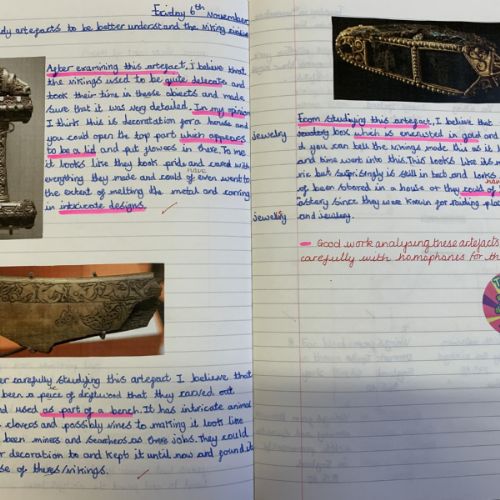 Friday 6th November
dy artefacts to be better understand the viking
After examining this artefact, i believe that
the vikings used to be quite delecate and
took their time in these objects and made
sure that it was very detailed. In my opinion
I think this is decoratation for a house and
you could open the top part which appears
to be a lid and put flowers in there. To me
it looks like they took pride and cared with
everything they made and could of even went to
have
the extent of melting the metal and carving
in intricate designs.
er carefully studying this artefact I believe that
been a piece of driftwood that they carved out
nd used as part of a bench. It has intricate animal
clovers and possibly vines to making it look like
been miners and searchers as there jobs. They could
r decoration to and kept it until now and found it
se of theres/vikings.
From studying this artefact, I believe that
jewelry box which is encrusted in gold and
d you can tell the vikings made this as it
and time went into this. This looks like its
ric but surprisingly is still in tact and looks
of been stored in a house or they could of
have
astery since they were known for raiding
and jewelry.
jewelry
jewelry
Good work analysing these artefacts
carefully with homophones for th